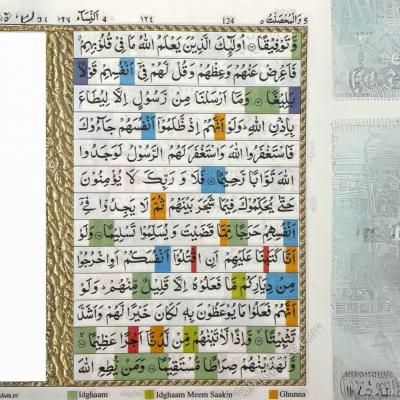 ٥ وَالْمُحْصَنٰتُ 124 ١٢٤ اَلنِّسَآء 4
وَّتَوْفِيْقًا ۝ اُولٰٓئِكَ الَّذِيْنَ يَعْلَمُ اللّٰهُ مَا فِيْ قُلُوْبِهِمْ
فَاَعْرِضْ عَنْهُمْ وَعِظْهُمْ وَقُلْ لَّهُمْ فِيْٓ اَنْفُسِهِمْ قَوْلًاۢ
بَلِيْغًا ۝ وَمَآ اَرْسَلْنَا مِنْ رَّسُوْلٍ اِلَّا لِيُطَاعَ
بِاِذْنِ اللّٰهِ ؕ وَلَوْ اَنَّهُمْ اِذْ ظَّلَمُوْٓا اَنْفُسَهُمْ جَآءُوْكَ
فَاسْتَغْفَرُوا اللّٰهَ وَاسْتَغْفَرَ لَهُمُ الرَّسُوْلُ لَوَجَدُوا
اللّٰهَ تَوَّابًا رَّحِيْمًا ۝ فَلَا وَرَبِّكَ لَا يُؤْمِنُوْنَ
حَتّٰى يُحَكِّمُوْكَ فِيْمَا شَجَرَ بَيْنَهُمْ ثُمَّ لَا يَجِدُوْا فِيْٓ
اَنْفُسِهِمْ حَرَجًا مِّمَّا قَضَيْتَ وَيُسَلِّمُوْا تَسْلِيْمًا ۝ وَلَوْ
اَنَّا كَتَبْنَا عَلَيْهِمْ اَنِ اقْتُلُوْٓا اَنْفُسَكُمْ اَوِ اخْرُجُوْا
مِنْ دِيَارِكُمْ مَّا فَعَلُوْهُ اِلَّا قَلِيْلٌ مِّنْهُمْ ؕ وَلَوْ
اَنَّهُمْ فَعَلُوْا مَا يُوْعَظُوْنَ بِهٖ لَكَانَ خَيْرًا لَّهُمْ وَاَشَدَّ
تَثْبِيْتًا ۝ وَّاِذًا لَّاٰتَيْنٰهُمْ مِّنْ لَّدُنَّآ اَجْرًا عَظِيْمًا ۝
وَّلَهَدَيْنٰهُمْ صِرَاطًا مُّسْتَقِيْمًا ۝ وَمَنْ يُّطِعِ اللّٰهَ
Idghaam Idghaam Meem Saakin Ghunna